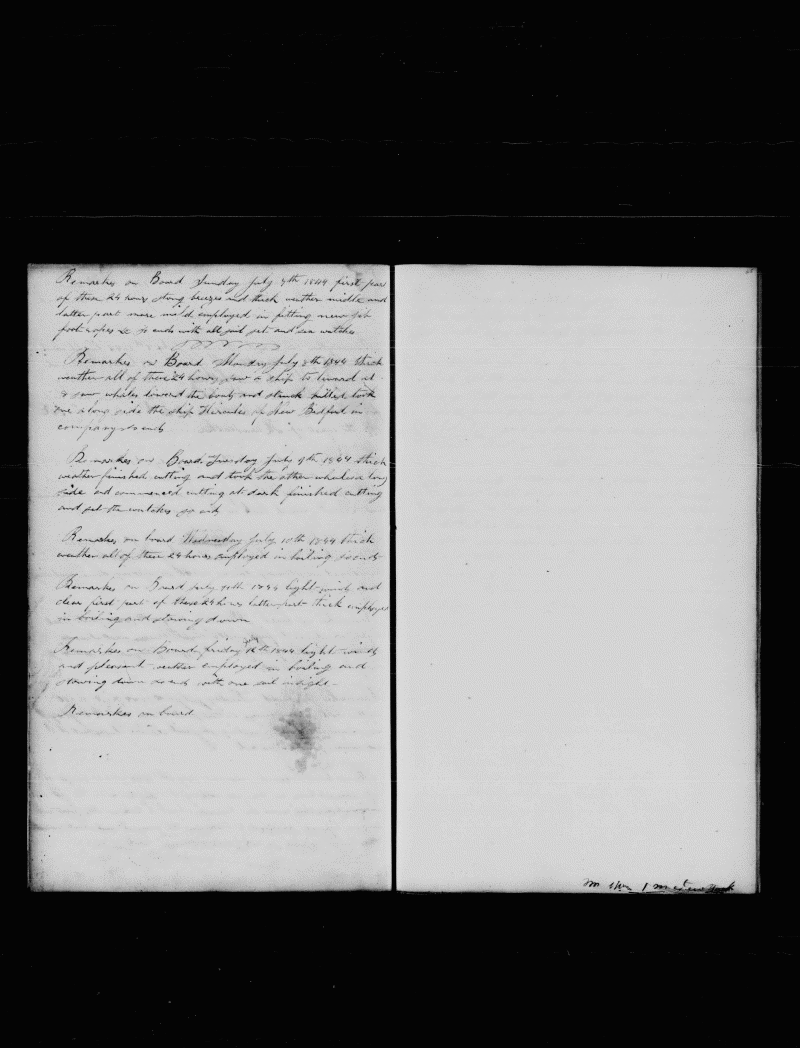 Remarks on Board Sunday July 7th 1844 first part
of these 24 hours strong breezes and thick weather middle and
latter part more mild employed in fitting new jib
foot ropes & so ends with all sail set and sea watches
Remarks on Board Monday July 8th 1844 thick
weather all of these 24 hours saw a ship to leward at
8 saw whales lowerd the boats and struck killed took
one along side the ship Hercules of New Bedford in
company so ends
Remarks on Board Tuesday July 9th 1844 thick
weather finished cutting and took the other whale a long
side and commenced cutting at dark finished cutting
and set the watches so ends
Remarks on board Wednesday July 10th 1844 thick
weather all of these 24 hours employed in boiling so ends
Remarks on Board July 11th 1844 light winds and
clear first part of these 24 hours latter part thick employed
in boiling and stowing down
Remarks on Board friday July 12th 1844 light winds
and pleasant weather employed in boiling and
stowing down so ends with one sail in sight
Remarkes on board